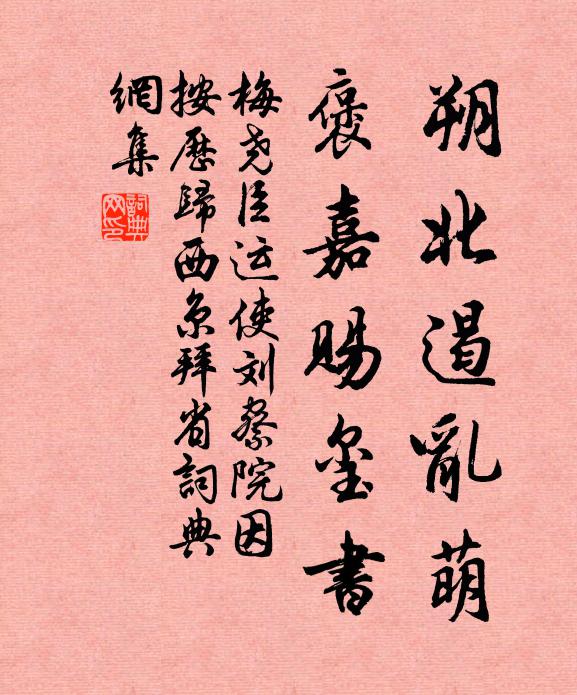 朔北遏亂萌
褒嘉賜玺書
梅尧臣运使刘察院因
按歷歸西京拜省詞典
網集
詞典網印